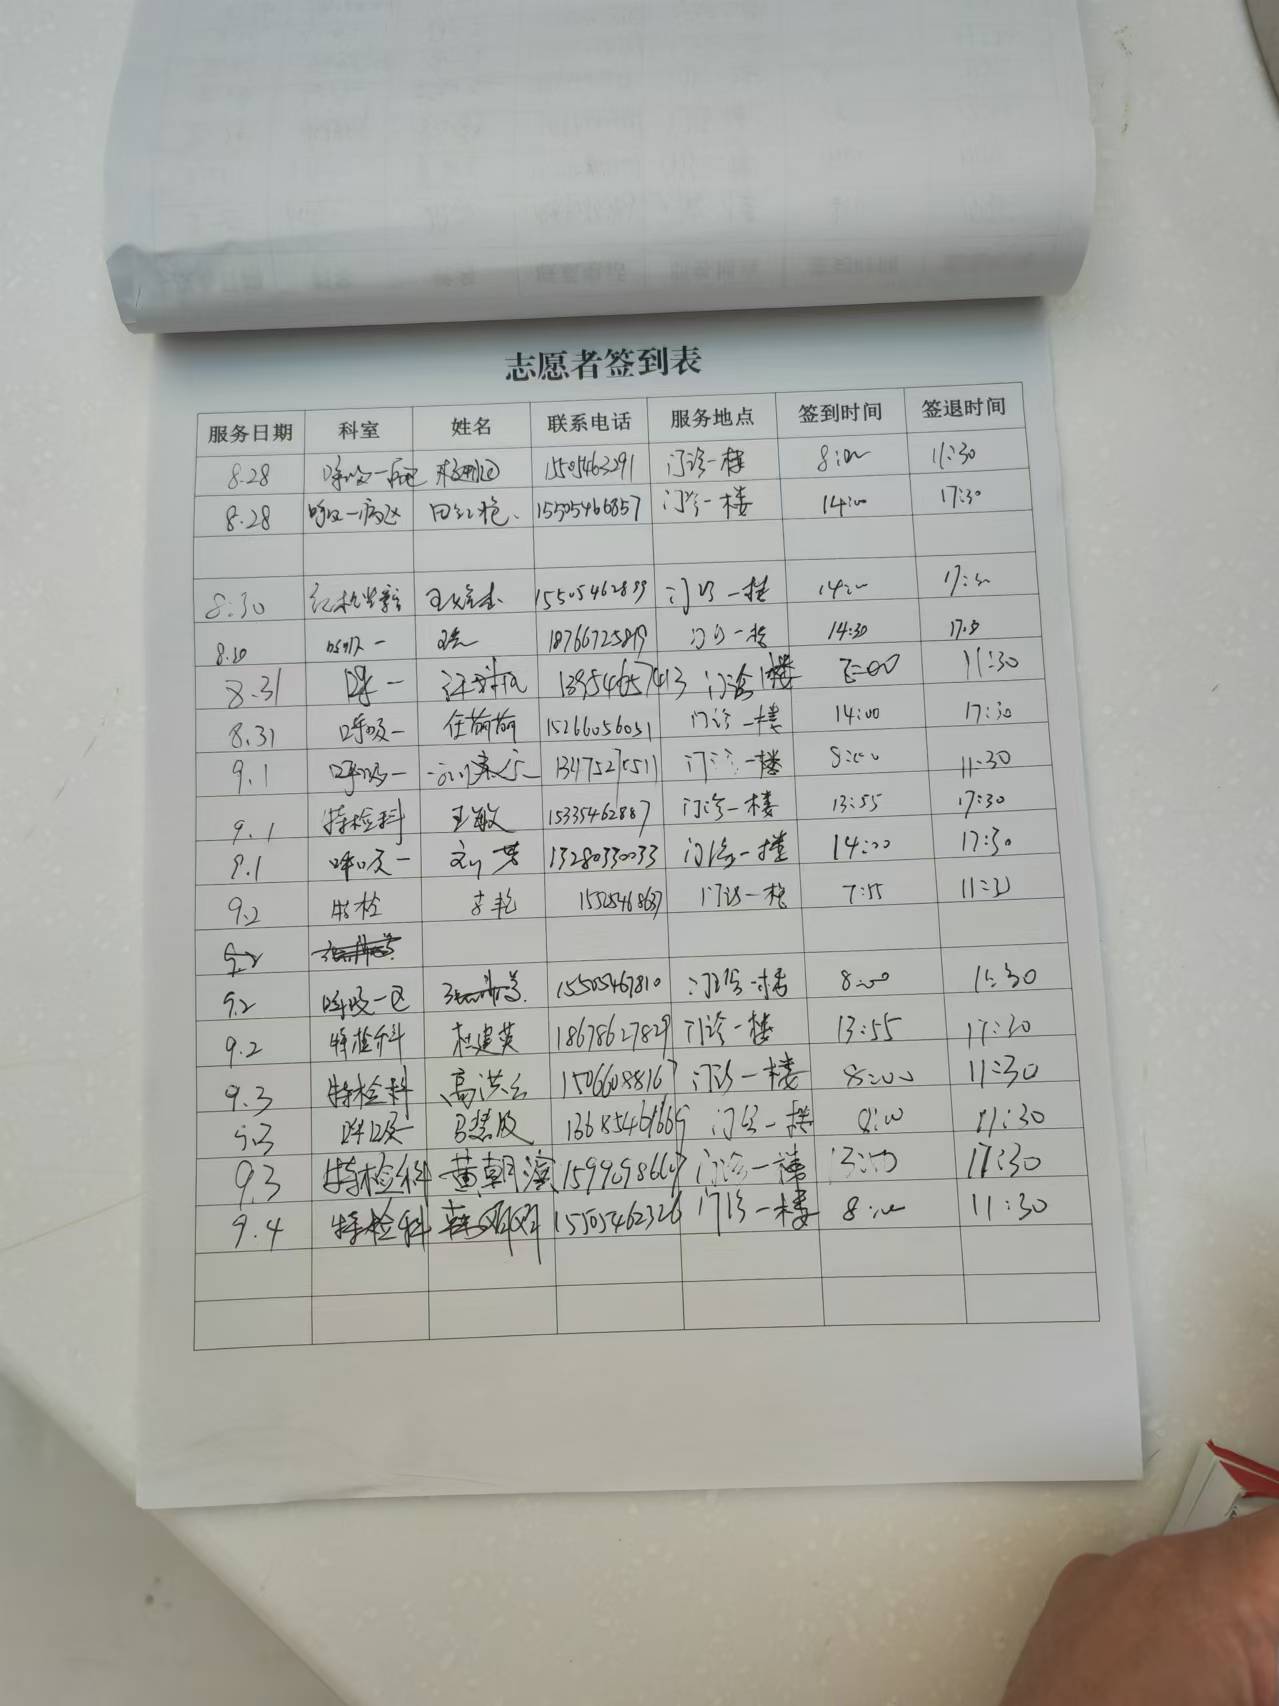 志愿者签到表
服务日期 科室 姓名 联系电话 服务地点 签到时间 签退时间
8.28 呼吸一病区 15505463291 门诊一楼 8:00 11:30
8.28 呼吸一病区 田红艳 15505466857 门诊一楼 14:00 17:30
8:30 15505462899 门诊一楼 14:00 17:30
8.30 呼吸一 18766725819 门诊一楼 14:30 17:30
8.31 呼一 13954657413 门诊1楼 11:30
8.31 呼吸一 任荷荷 15266056051 门诊一楼 14:00 17:30
9.1 呼吸一 门诊一楼 8:00 11:30
9.1 特检科 王敏 15335462887 门诊一楼 13:55 17:30
9.1 呼吸一 13280330033 门诊一楼 14:00 17:30
9.2 特检 李艳 门诊一楼 7:55 11:30
9.2
9.2 呼吸一区 15505467810 门诊一楼 8:00 11:30
9.2 特检科 杜建英 18678627829 门诊一楼 13:55 17:30
9.3 特检科 15066088167 门诊一楼 8:00 11:30
9.3 呼吸一 门诊一楼 8:00 11:30
9.3 特检科 黄朝滨 门诊一楼 13:50 17:30
9.4 特检科 15505462326 门诊一楼 8:00 11:30